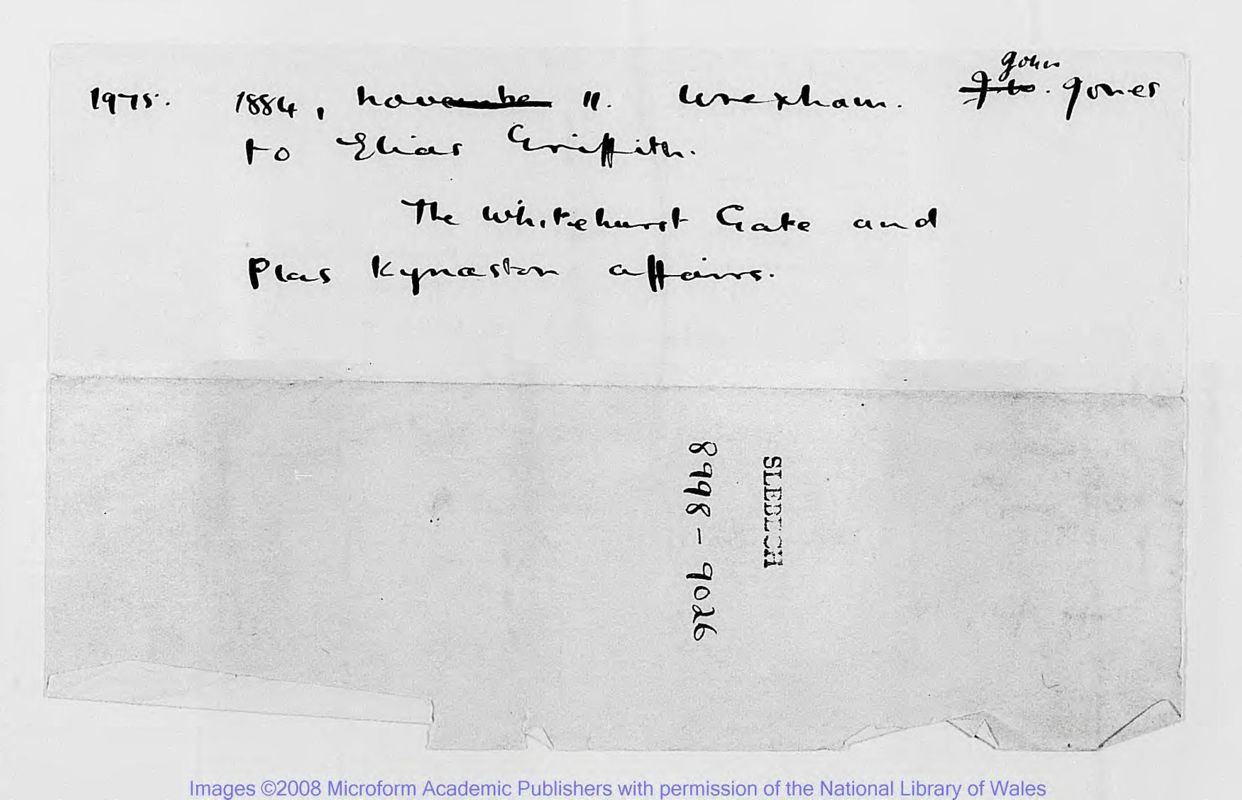 1975. 1884, November 11. Wrexham. John Jones
to Elias Griffith.
The Whitehurst Gate and
Plas Kynaston affairs.
SLEBECH
8998 - 9026
Images ©2008 Microform Academic Publishers with permission of the National Library of Wales